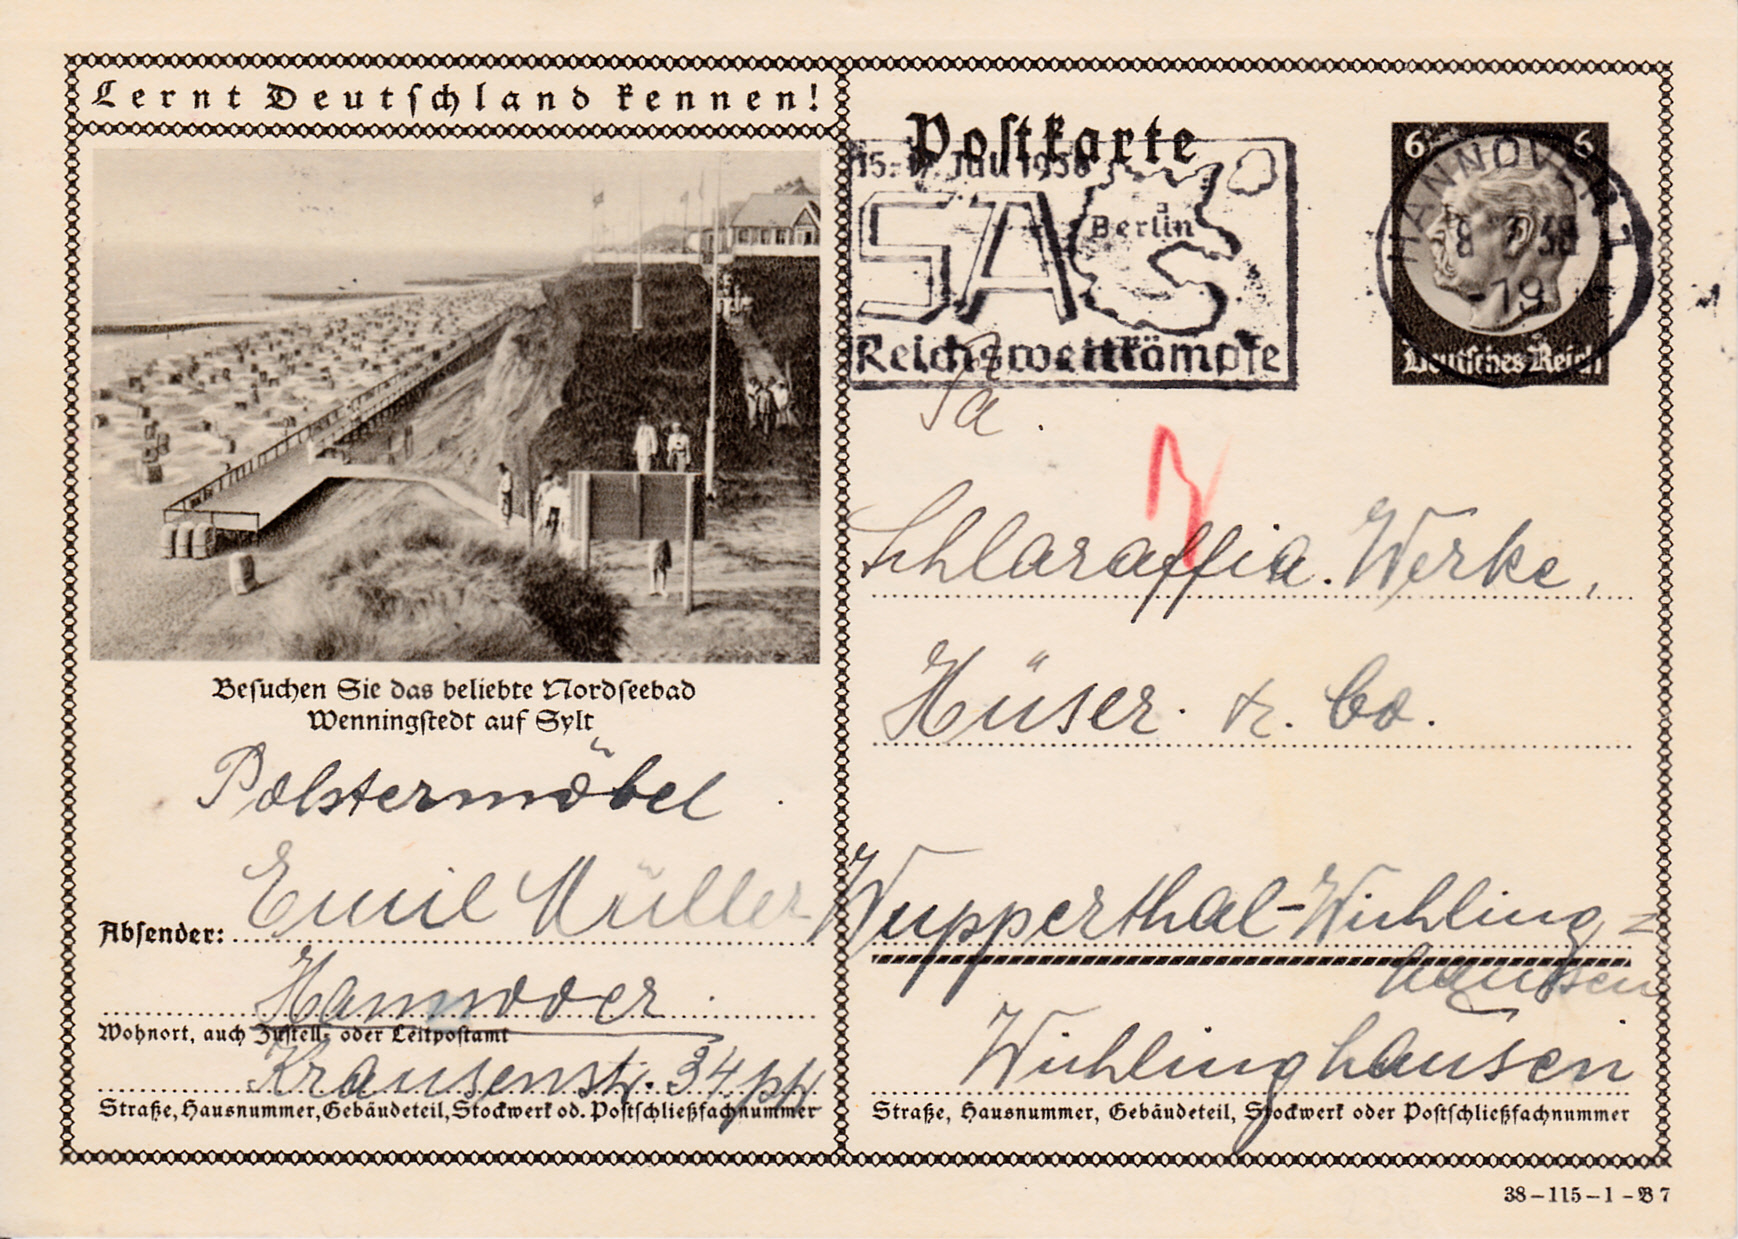 Lernt Deutschland kennen!
Besuchen Sie das beliebte Nordseebad
Wenningstedt auf Sylt
Polstermöbel
Emil Müller
Absender:
Hannover
Wohnort, auch Zustell- oder Leitpostamt
Krausenstr. 34 ptr
Straße, Hausnummer, Gebäudeteil, Stockwerk od. Postschließfachnummer
Postkarte
15.-17. Juli 1938
SA
Berlin
Reichswettkämpfe
6 6
HANNOVER 1
8 7 38
-19
Deutsches Reich
Fa.
Schlaraffia. Werke,
Hüser. & Co.
Wupperthal-Wichling=
hausen
Wichlinghausen
Straße, Hausnummer, Gebäudeteil, Stockwerk oder Postschließfachnummer
38-115-1-B7